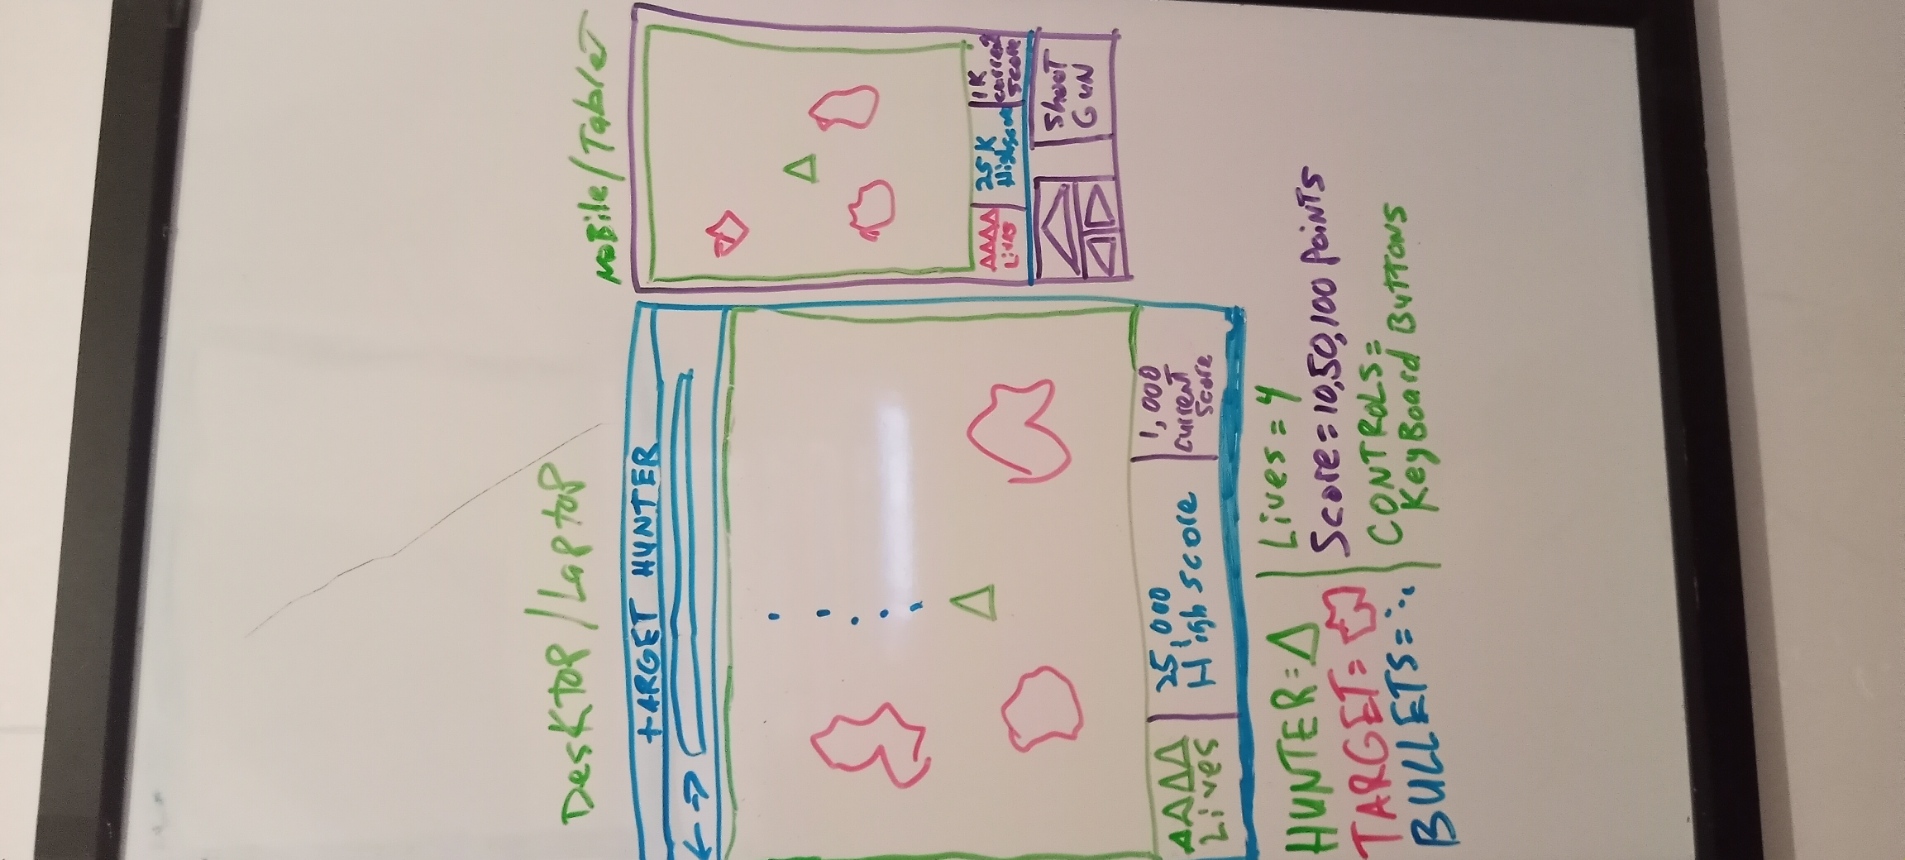 Desktop/Laptop
TARGET HUNTER
Lives
25,000
High score
1,000
current
score
Mobile/Tablet
Lives
25K
Highscore
1K
current
score
Shoot
GUN
HUNTER=
TARGET=
BULLETS=
Lives=4
Score=10,50,100 Points
CONTROLS=
KeyBoard Buttons